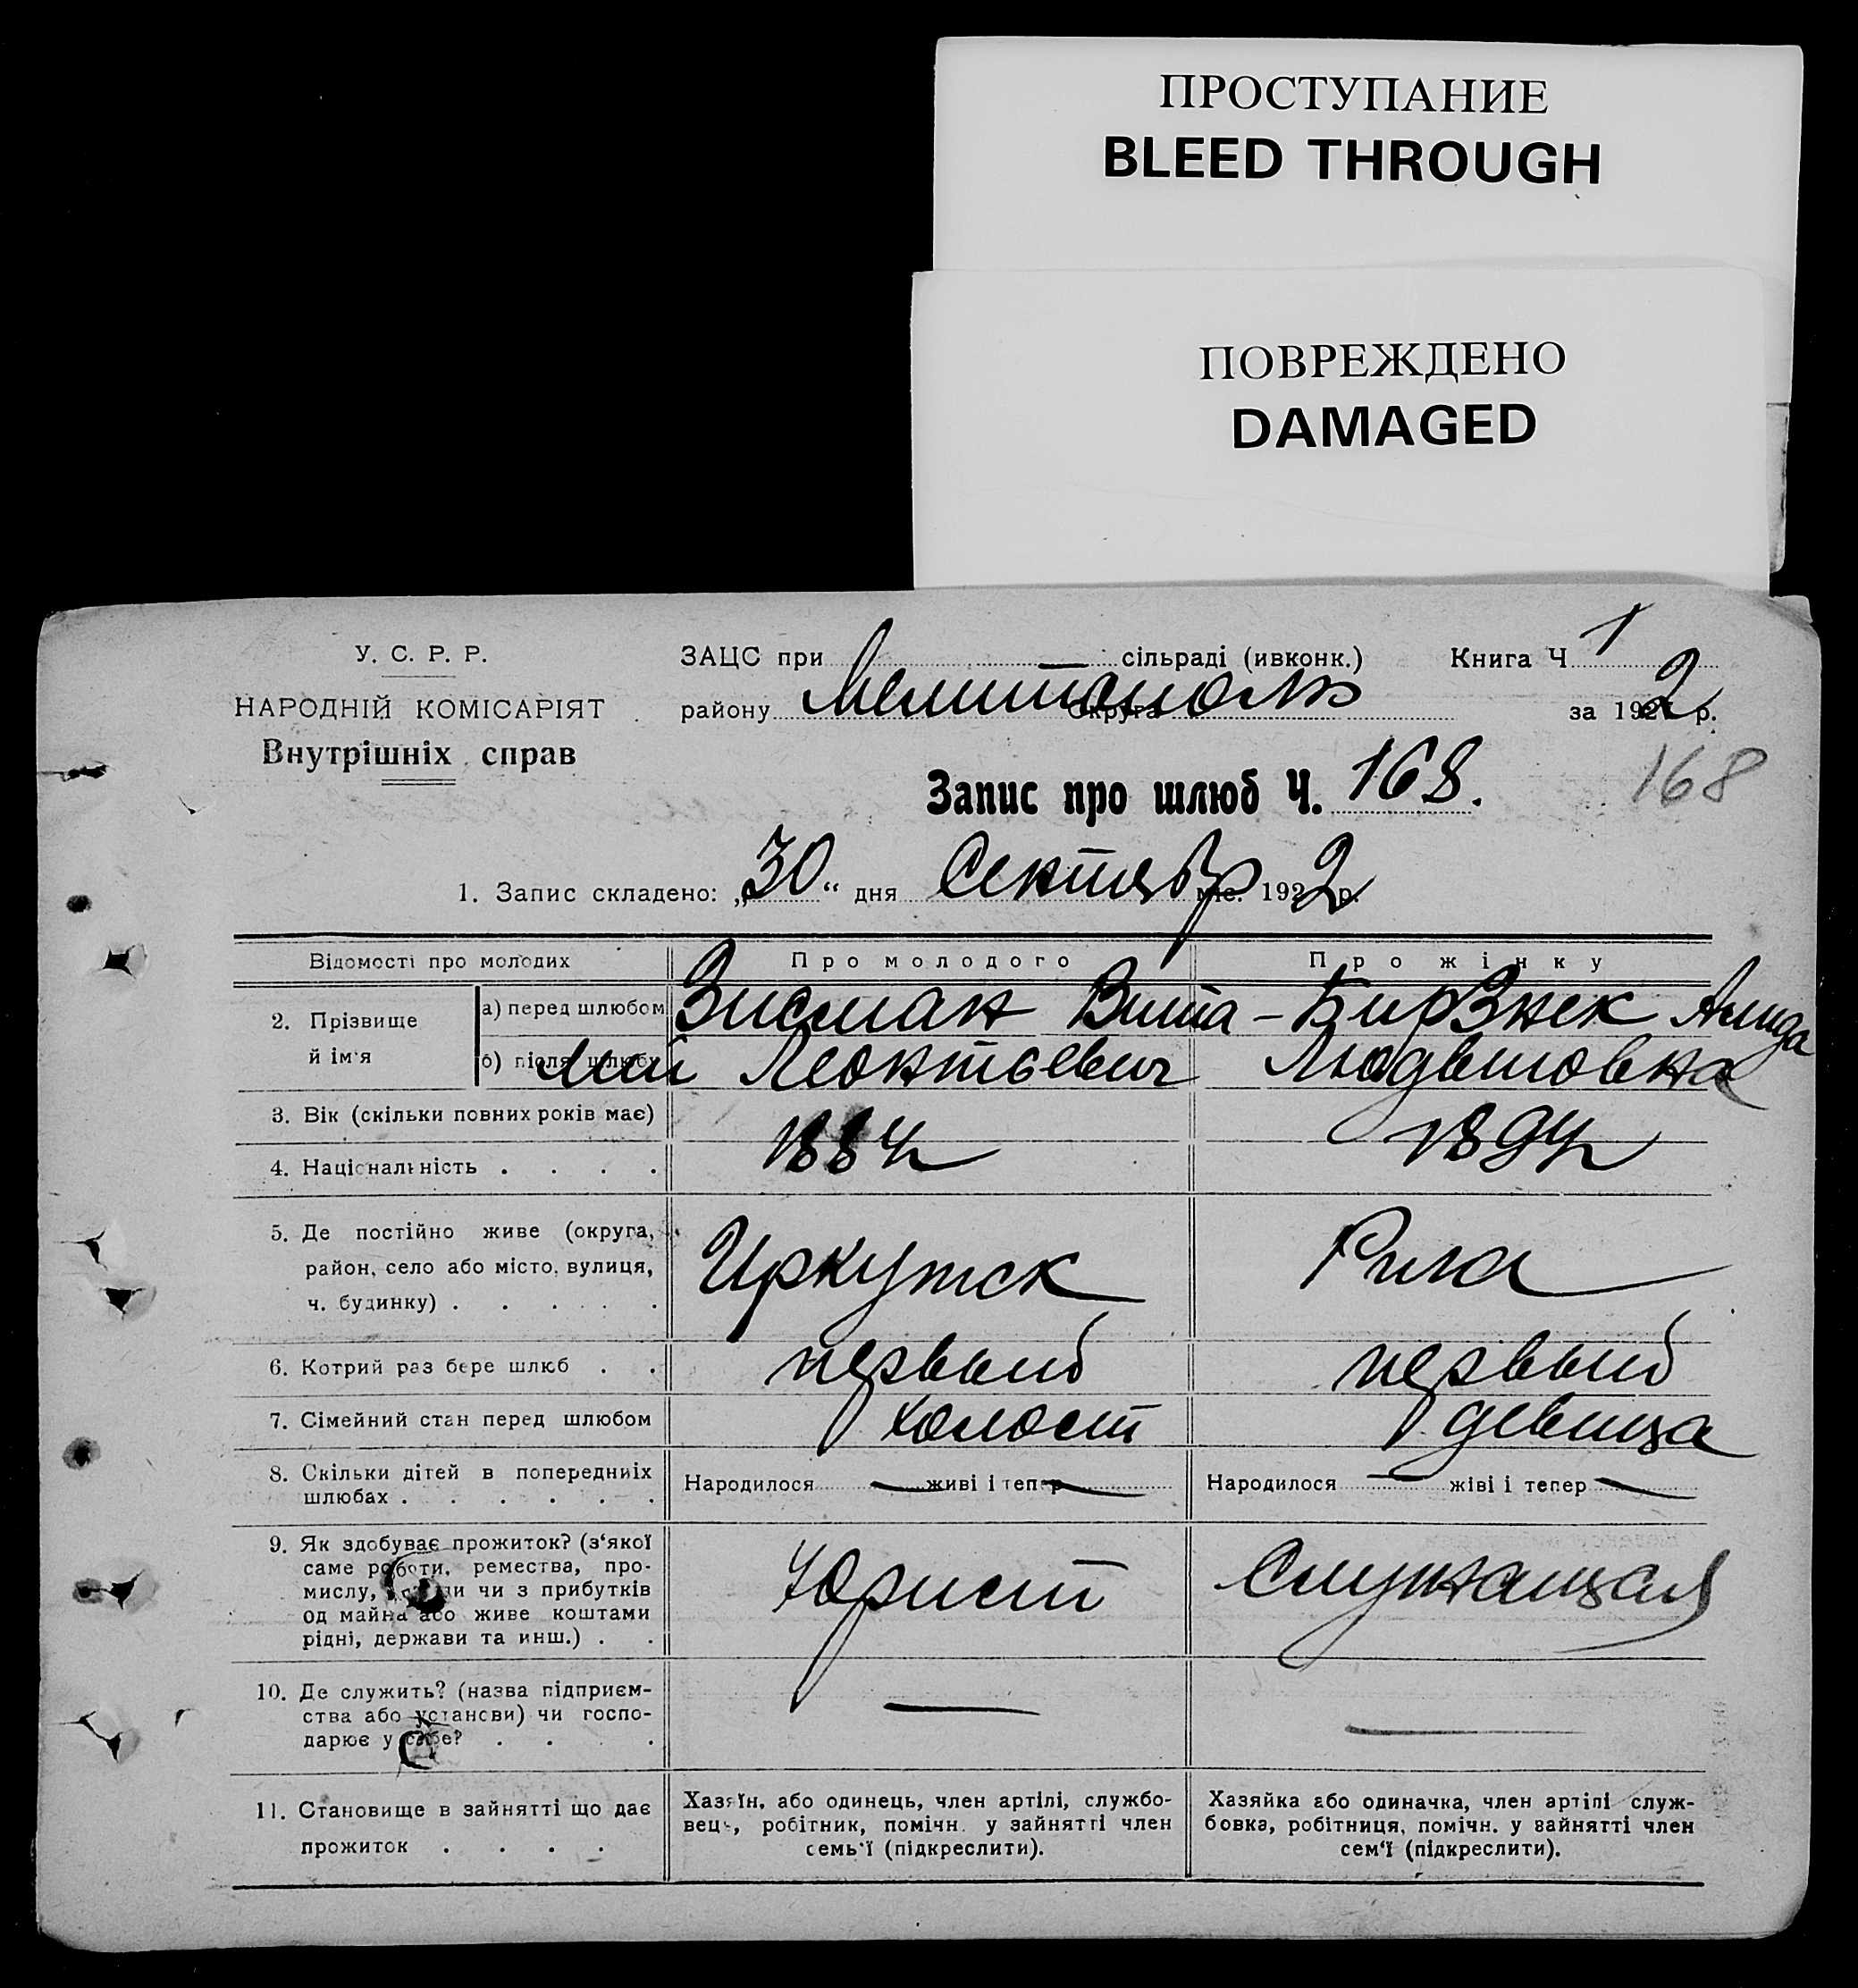 ПРОСТУПАНИЕ
BLEED THROUGH
ПОВРЕЖДЕНО
DAMAGED
У. С. Р. Р.
НАРОДНІЙ КОМІСАРІЯТ
Внутрішніх справ
ЗАЦС при сільраді (ивконк.) Книга Ч 1
району Мелитополь Округа за 1922 р.
Запис про шлюб Ч. 168. 168
1. Запис складено: „30“ дня Сентябр міс. 1922 р.
Відомості про молодих Про молодого Про жінку
2. Прізвище й ім'я
а) перед шлюбом Зисман Вита- Бирзнек Алида
б) після шлюбу лий Леонтьевич Людвиговна
3. Вік (скільки повних років має)
4. Національність . . . . 1884 1894
5. Де постійно живе (округа, район, село або місто, вулиця, ч. будинку) . . . . . Иркутск Рига
6. Котрий раз бере шлюб . . первый первый
7. Сімейний стан перед шлюбом холост девица
8. Скільки дітей в попередніх шлюбах . . . . . . Народилося — живі і тепер — Народилося — жіві і тепер —
9. Як здобуває прожиток? (з‘якої
саме роботи, ремества, про-
мислу, чи з прибутків
од майна або живе коштами
рідні, держави та инш.) . . Юрист Служащая
10. Де служить? (назва підприєм-
ства або установи) чи госпо-
дарює у себе? . . . . — —
11. Становище в зайнятті що дає
прожиток . . . .
Хазяїн, або одинець, член артілі, службо-
вець, робітник, помічн. у зайнятті член
семь‘ї (підкреслити).
Хазяйка або одиначка, член артілі служ-
бовка, робітниця, помічн. у зайнятті член
сем‘ї (підкреслити).